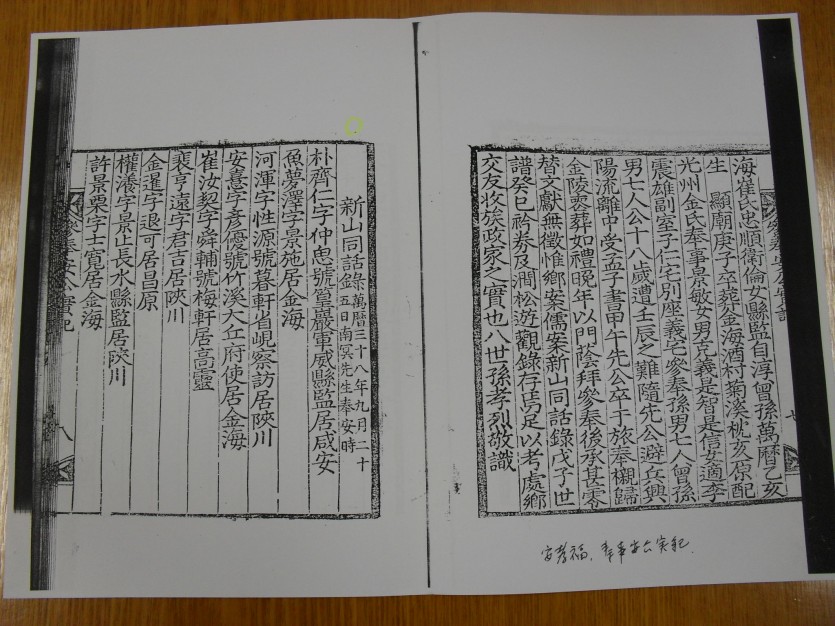 海崔氏忠順衛倫女縣監自淳曾孫萬曆乙亥
生　顯廟庚子卒葬金海酒村菊溪桃亥原配
光州金氏奉事景敏女男克義是智是信女適李
震雄副室子仁宅別座義宅參奉孫男七人曾孫
男七人公十八歲遭壬辰之難隨先公避兵興
陽流離中受孟子書甲午先公卒于旅奉櫬歸
金陵窆葬如禮晚年以門蔭拜參奉後承甚零
替文獻無徵惟鄉案儒案新山同話錄戊子世
譜癸巳衿券及澗松遊觀錄存焉足以考處鄉
交友收族政家之實也八世孫孝烈敬識
新山同話錄 萬曆三十八年九月二十
五日南冥先生奉安時
朴齊仁字仲思號篁巖軍威縣監居咸安
魚夢澤字景施居金海
河渾字性源號暮軒省峴察訪居陜川
安憙字彥優號竹溪大丘府使居金海
崔汝契字舜輔號梅軒居高靈
裵亨遠字君吉居陜川
金暹字退可居昌原
權瀁字景止長水縣監居陜川
許景栗字士寬居金海
八
安孝福